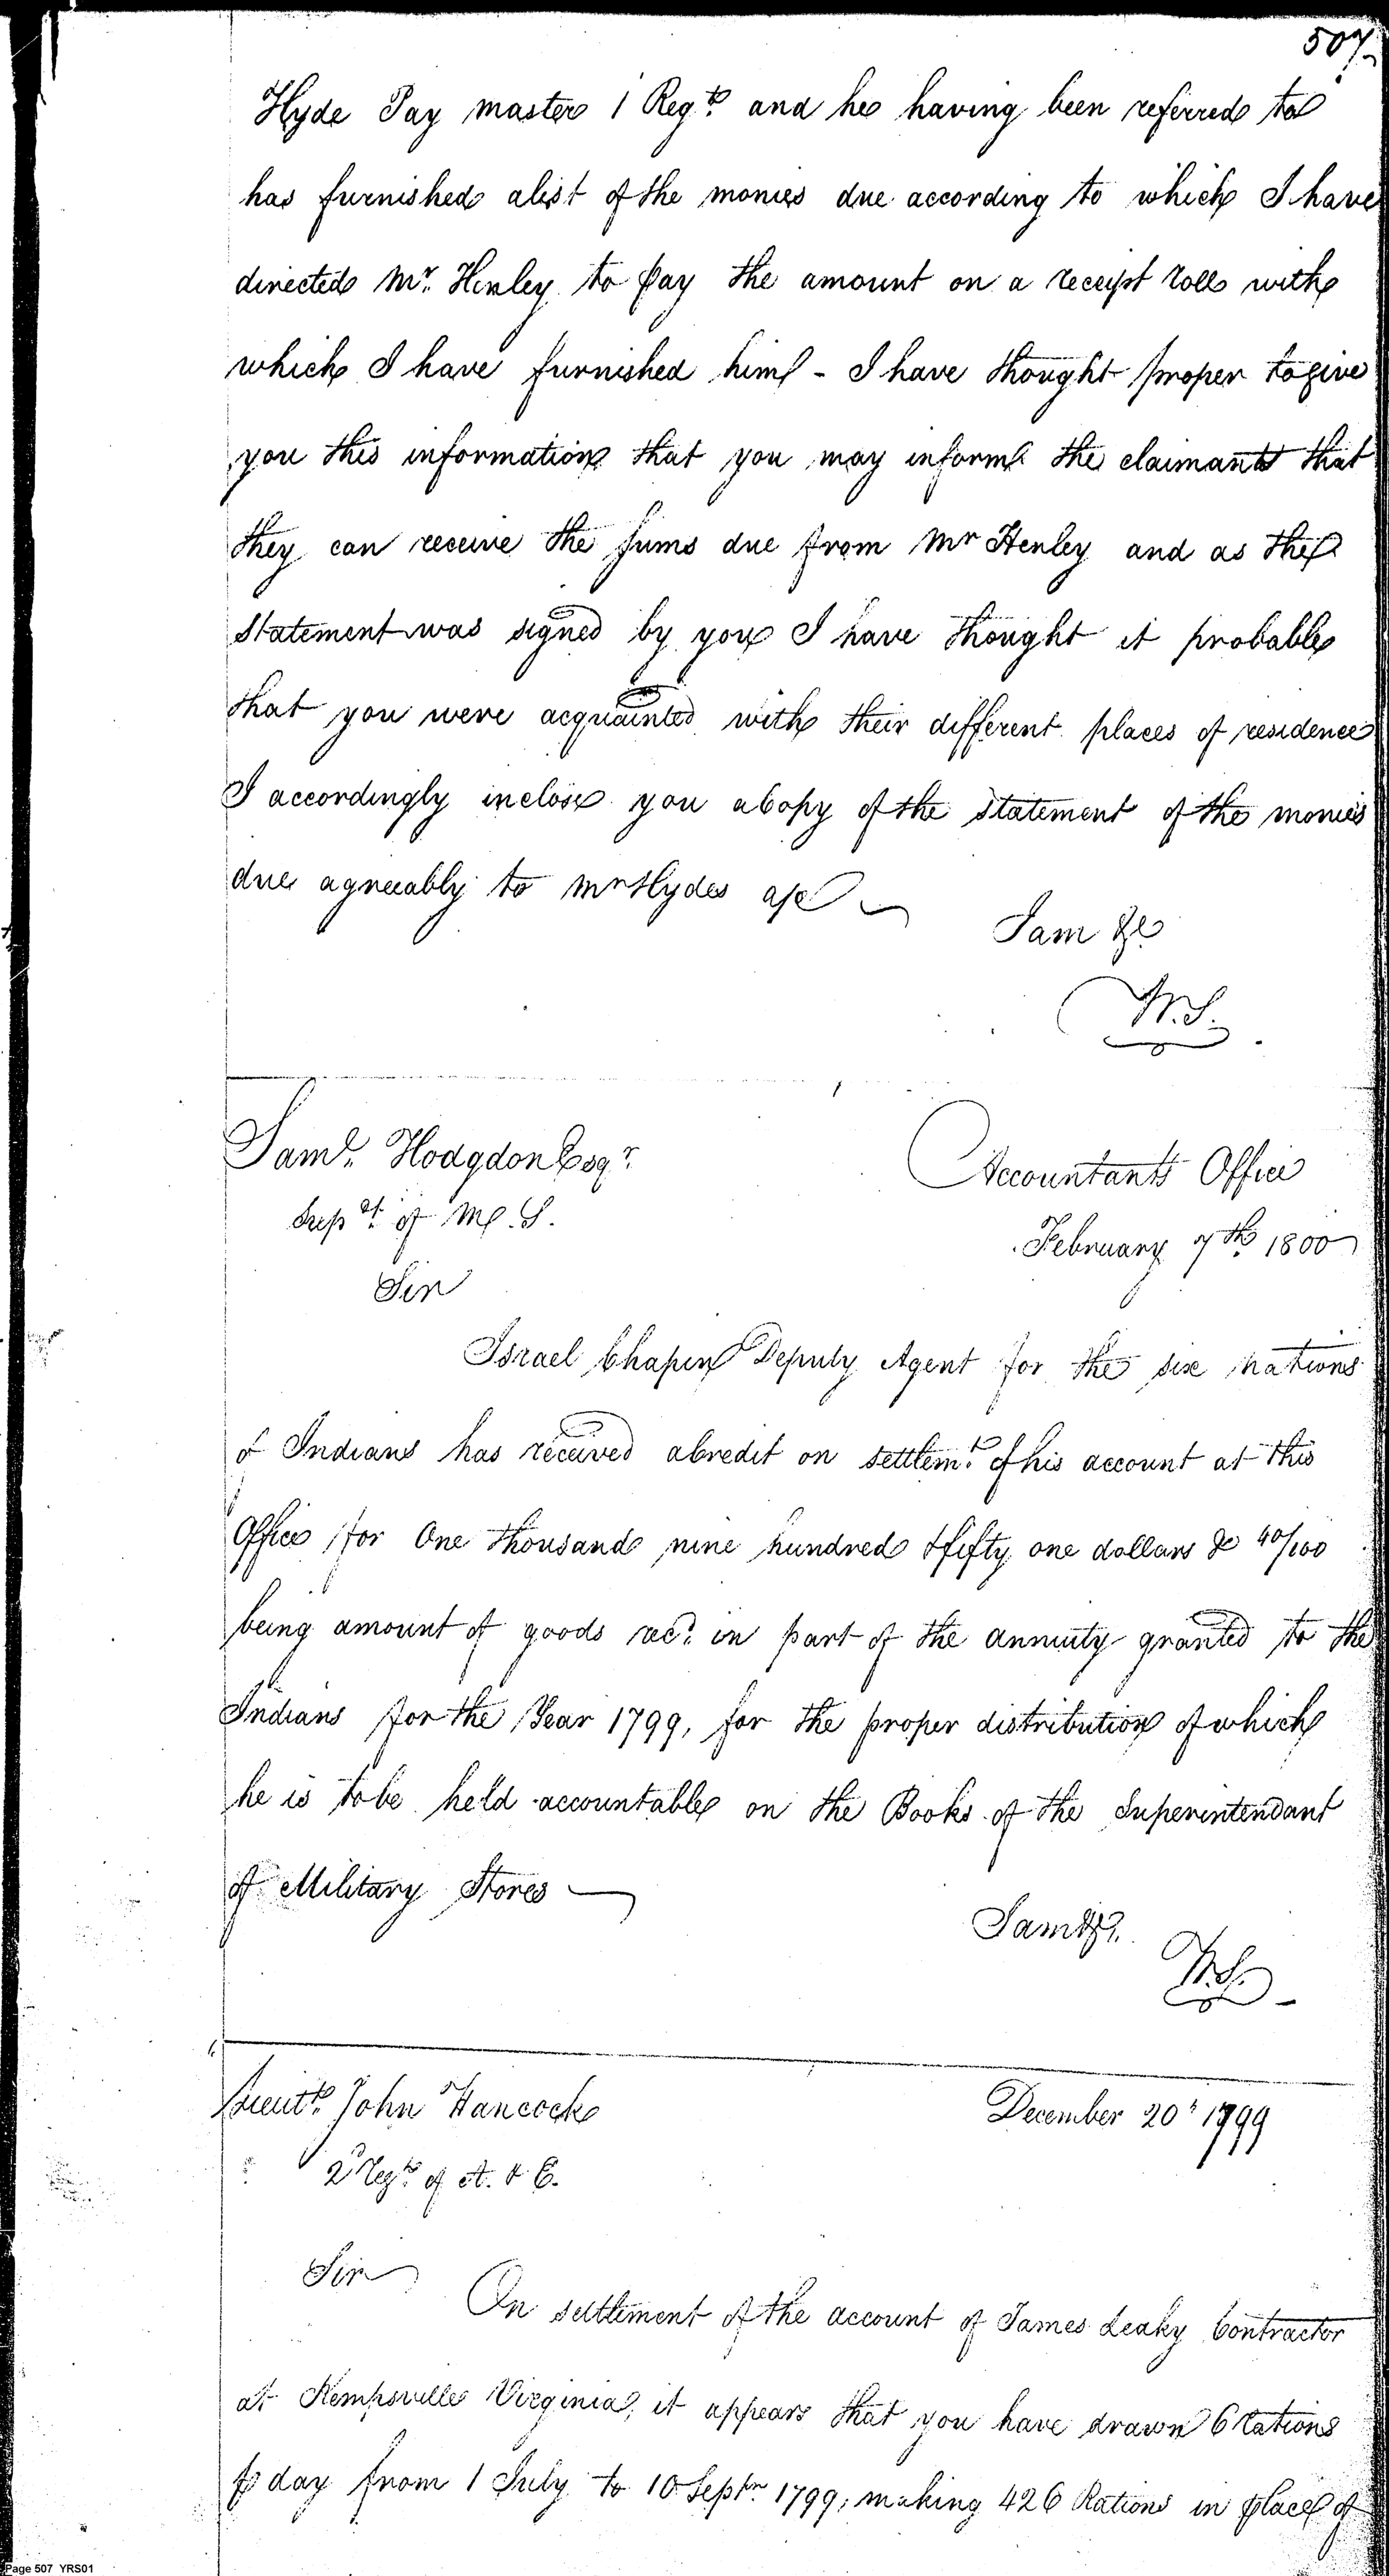 507
Hyde Pay master 1 Regt. and he having been referred to
has furnished alist of the monies due according to which I have
directed Mr. Henley to pay the amount on a receipt roll with
which I have furnished him - I have thought proper to give
you this information that you may inform the claimants that
they can receive the sums due from Mr Henley and as the
statement was signed by you I have thought it probable
that you were acquainted with their different places of residence
I accordingly inclose you a Copy of the statement of the monies
due agreeably to Mr Hydes a/c
I am &c
W.S.
Saml. Hodgdon Esqr.
Supdt. of M. S.
Accountants Office
February 7th 1800
Sir
Israel Chapin Deputy Agent for the six nations
of Indians has received a Credit on settlemt. of his account at this
Office for One thousand nine hundred & fifty one dollars & 40/100
being amount of goods recd. in part of the annuity granted to the
Indians for the Year 1799, for the proper distribution of which
he is to be held accountable on the Books of the Superintendant
of Military Stores
I am &c.
W.S.
Lieutt. John Hancock
December 20th 1799
2 Regt. of A. & E.
Sir
On settlement of the account of James Leaky Contractor
at Kempsville Virginia, it appears that you have drawn 6 Rations
p day from 1 July to 10 Septr. 1799, making 426 Rations in place of
Page 507 YRS01